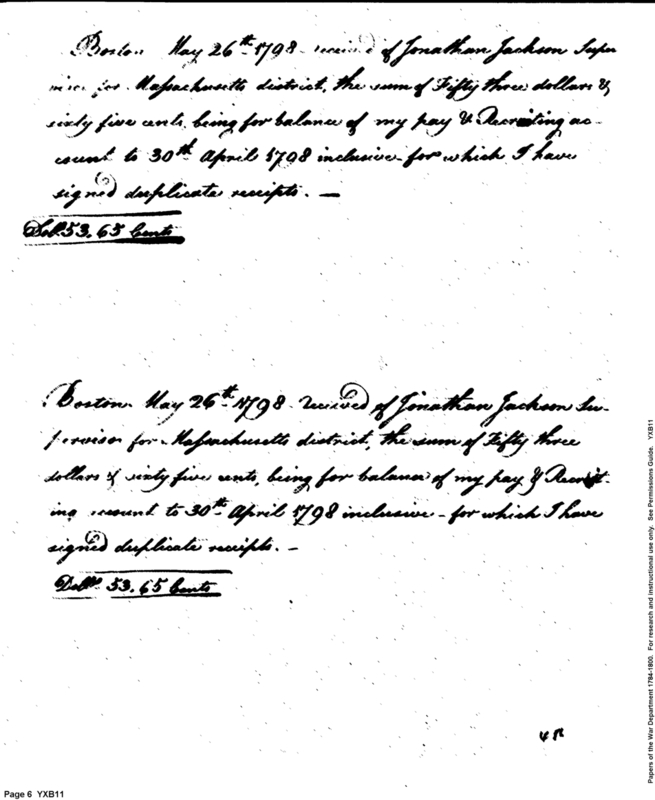 Boston May 26th 1798 received of Jonathan Jackson Super
visor for Massachusetts district, the sum of Fifty three dollars &
sixty five cents, being for balance of my pay & Recruiting ac-
count to 30th April 1798 inclusive - for which I have
signed duplicate receipts. —
Doll. 53.65 Cents
Boston May 26th 1798 - Received of Jonathan Jackson Su-
pervisor for Massachusetts district, the sum of Fifty three
dollars & sixty five cents, being for balance of my pay & Recruit-
ing account to 30th April 1798 inclusive - for which I have
signed duplicate receipts. —
Dollrs. 53.65 Cents
Page 6 YXB11
Papers of the War Department 1784-1800. For research and instructional use only. See Permissions Guide. YXB11